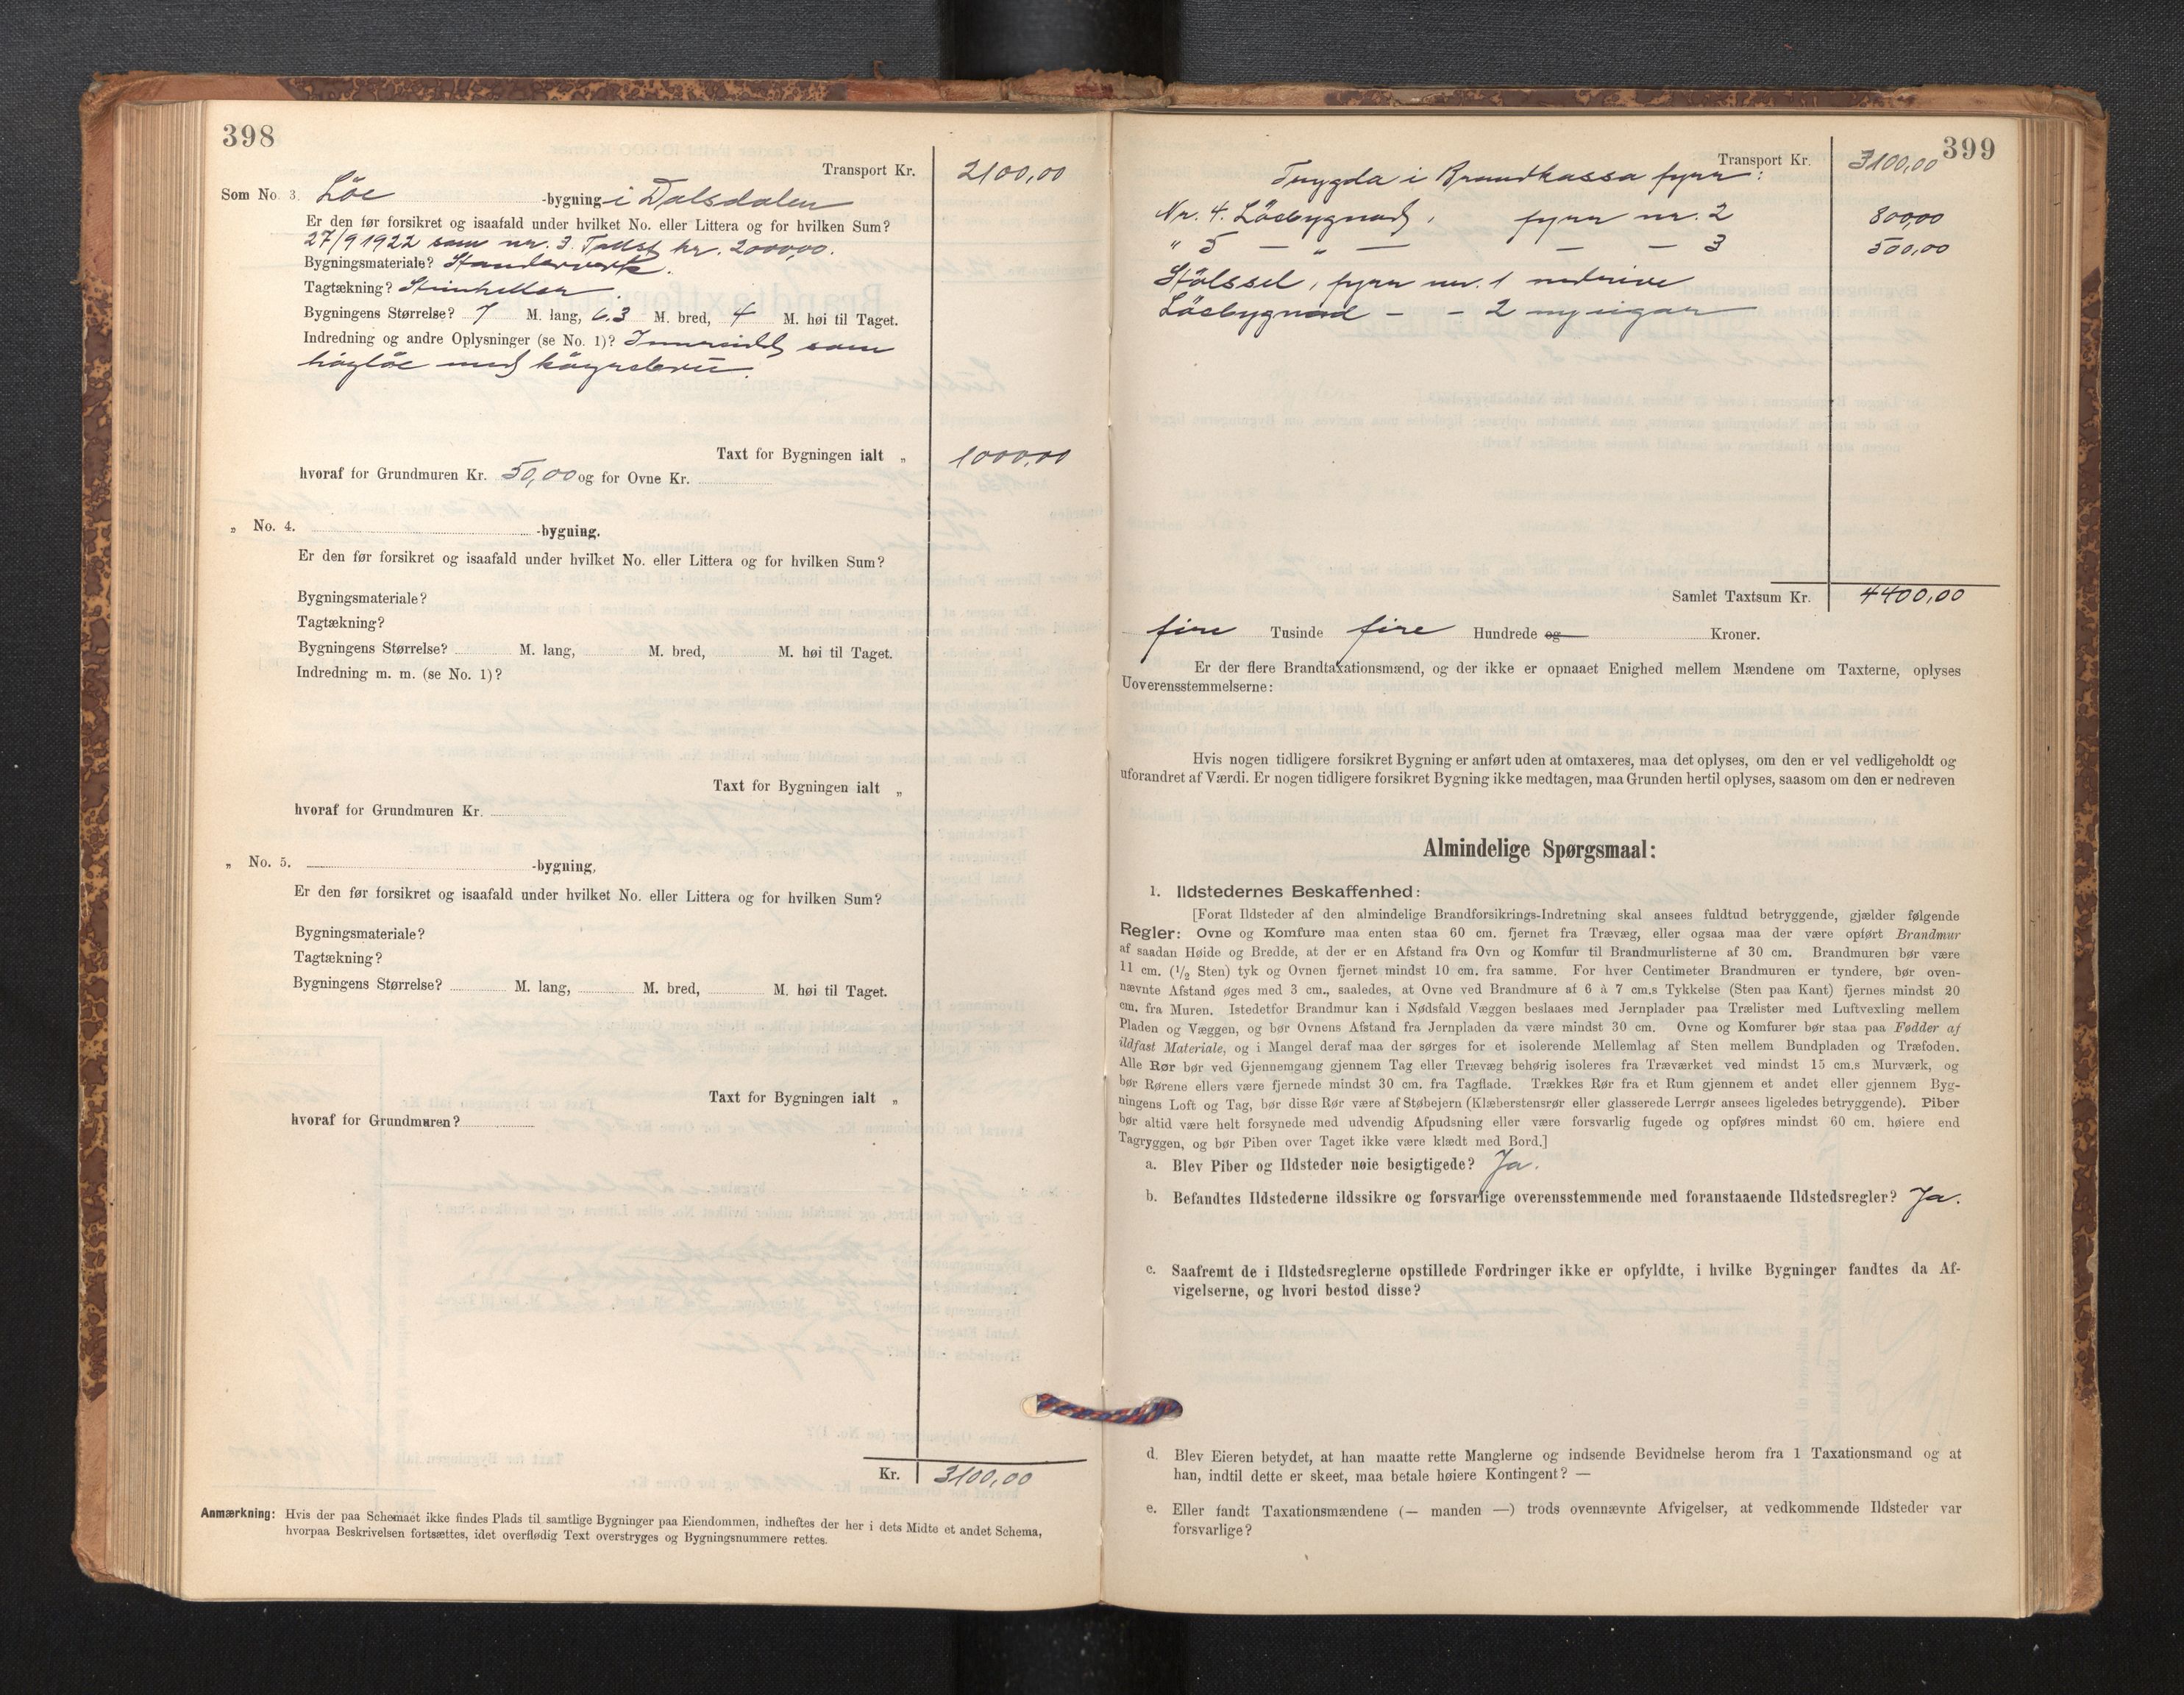 398
Transport Kr. 2100,00
Som No. 3. Löe -bygning i Dalsdalen
Er den før forsikret og isaafald under hvilket No. eller Littera og for hvilken Sum?
27/9 1922 som nr. 3. Takst kr. 2000,00.
Bygningsmateriale? Standerverk.
Tagtækning? Steinheller.
Bygningens Størrelse? 7 M. lang, 6.3 M. bred, 4 M. høi til Taget.
Indredning og andre Oplysninger (se No. 1)? Innreidd som
höyløe med
Taxt for Bygningen ialt „ 1000,00
hvoraf for Grundmuren Kr. 50,00 og for Ovne Kr.
„ No. 4. -bygning.
Er den før forsikret og isaafald under hvilket No. eller Littera og for hvilken Sum?
Bygningsmateriale?
Tagtækning?
Bygningens Størrelse? M. lang, M. bred, M. høi til Taget.
Indredning m. m. (se No. 1)?
Taxt for Bygningen ialt „
hvoraf for Grundmuren Kr.
„ No. 5. -bygning,
Er den før forsikret og isaafald under hvilket No. eller Littera og for hvilken Sum?
Bygningsmateriale?
Tagtækning?
Bygningens Størrelse? M. lang, M. bred, M. høi til Taget.
Taxt for Bygningen ialt „
hvoraf for Grundmuren?
Kr. 3100,00
Anmærkning: Hvis der paa Schemaet ikke findes Plads til samtlige Bygninger paa Eiendommen, indheftes der her i dets Midte et andet Schema,
hvorpaa Beskrivelsen fortsættes, idet overflødig Text overstryges og Bygningsnummere rettes.
399
Transport Kr. 3100,00
Trygda i Brandkassa fyrr:
Nr. 4. Löebygnad, fyrr nr. 2 800,00
" 5 — " — — — 3 500,00
Stölssel, fyrr nr. 1 nedrive
Löebygnad - - 2
Samlet Taxtsum Kr. 4400,00
fire Tusinde fire Hundrede og Kroner.
Er der flere Brandtaxationsmænd, og der ikke er opnaaet Enighed mellem Mændene om Taxterne, oplyses
Uoverensstemmelserne:
Hvis nogen tidligere forsikret Bygning er anført uden at omtaxeres, maa det oplyses, om den er vel vedligeholdt og
uforandret af Værdi. Er nogen tidligere forsikret Bygning ikke medtagen, maa Grunden hertil oplyses, saasom om den er nedreven
Almindelige Spørgsmaal:
1. Ildstedernes Beskaffenhed:
[Forat Ildsteder af den almindelige Brandforsikrings-Indretning skal ansees fuldtud betryggende, gjælder følgende
Regler: Ovne og Komfure maa enten staa 60 cm. fjernet fra Trævæg, eller ogsaa maa der være opført Brandmur
af saadan Høide og Bredde, at der er en Afstand fra Ovn og Komfur til Brandmurlisterne af 30 cm. Brandmuren bør være
11 cm. (1/2 Sten) tyk og Ovnen fjernet mindst 10 cm. fra samme. For hver Centimeter Brandmuren er tyndere, bør oven-
nævnte Afstand øges med 3 cm., saaledes, at Ovne ved Brandmure af 6 à 7 cm.s Tykkelse (Sten paa Kant) fjernes mindst 20
cm. fra Muren. Istedetfor Brandmur kan i Nødsfald Væggen beslaaes med Jernplader paa Trælister med Luftvexling mellem
Pladen og Væggen, og bør Ovnens Afstand fra Jernpladen da være mindst 30 cm. Ovne og Komfurer bør staa paa Fødder af
ildfast Materiale, og i Mangel deraf maa der sørges for et isolerende Mellemlag af Sten mellem Bundpladen og Træfoden.
Alle Rør bør ved Gjennemgang gjennem Tag eller Trævæg behørig isoleres fra Træværket ved mindst 15 cm.s Murværk, og
bør Rørene ellers være fjernede mindst 30 cm. fra Tagflade. Trækkes Rør fra et Rum gjennem et andet eller gjennem Byg-
ningens Loft og Tag, bør disse Rør være af Støbejern (Klæberstensrør eller glasserede Lerrør ansees ligeledes betryggende). Piber
bør altid være helt forsynede med udvendig Afpudsning eller være forsvarlig fugede og opføres mindst 60 cm. høiere end
Tagryggen, og bør Piben over Taget ikke være klædt med Bord.]
a. Blev Piber og Ildsteder nøie besigtigede? Ja.
b. Befandtes Ildstederne ildssikre og forsvarlige overensstemmende med foranstaaende Ildstedsregler? Ja.
c. Saafremt de i Ildstedsreglerne opstillede Fordringer ikke er opfyldte, i hvilke Bygninger fandtes da Af-
vigelserne, og hvori bestod disse?
d. Blev Eieren betydet, at han maatte rette Manglerne og indsende Bevidnelse herom fra 1 Taxationsmand og at
han, indtil dette er skeet, maa betale høiere Kontingent? —
e. Eller fandt Taxationsmændene (— manden —) trods ovennævnte Afvigelser, at vedkommende Ildsteder var
forsvarlige?